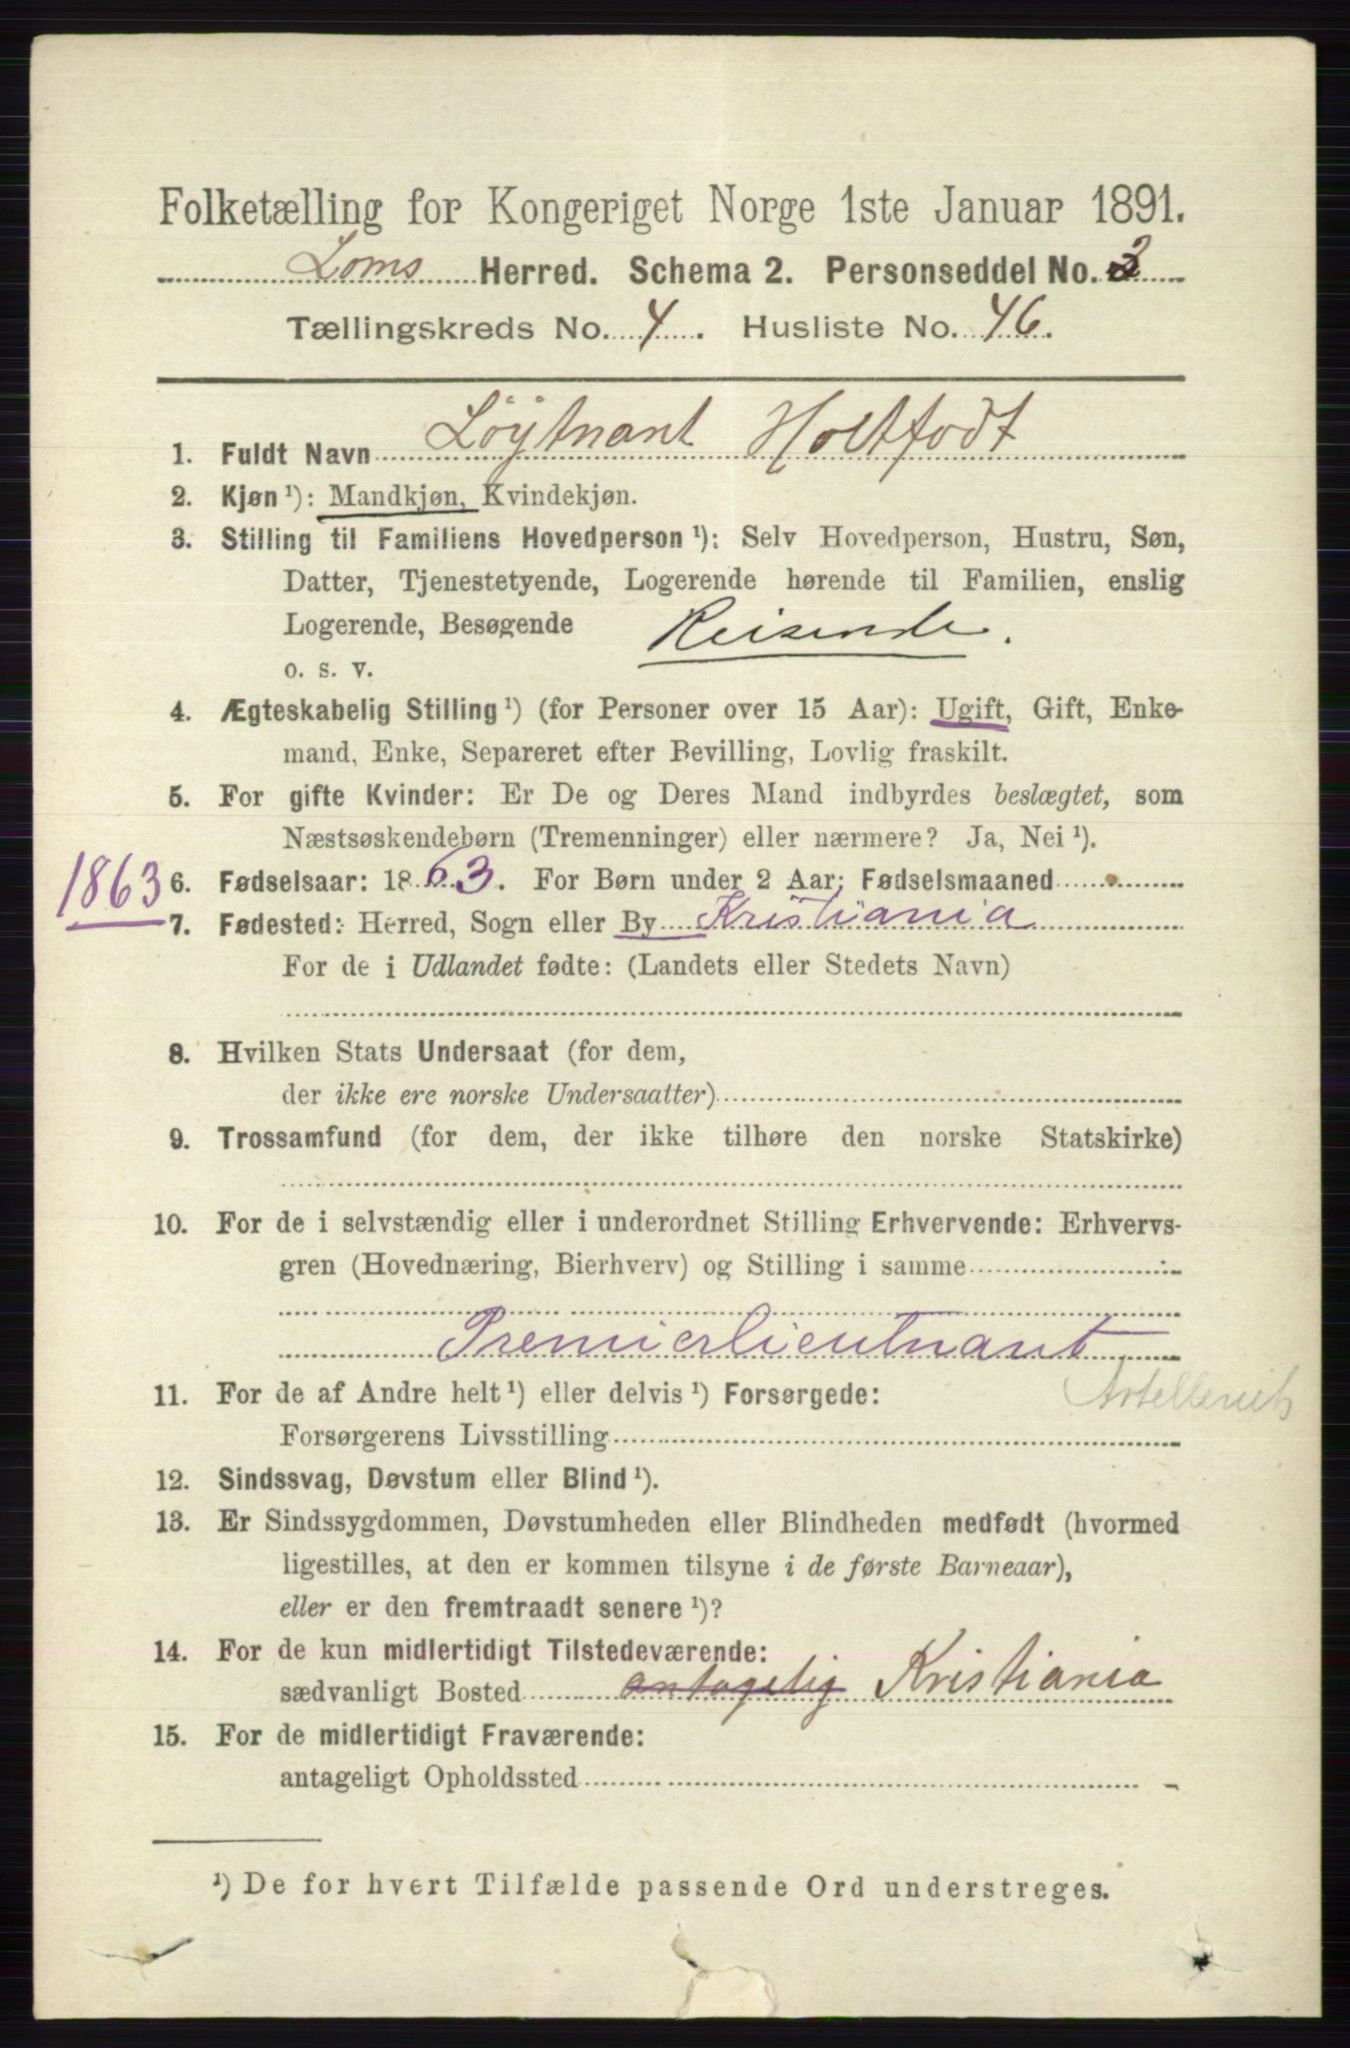 Folketælling for Kongeriget Norge 1ste Januar 1891.
Loms Herred. Schema 2. Personseddel No. 2
Tællingskreds No. 4. Husliste No. 46.
1. Fuldt Navn Löytnant Holtfodt
2. Kjøn ¹): Mandkjøn, Kvindekjøn.
3. Stilling til Familiens Hovedperson ¹): Selv Hovedperson, Hustru, Søn,
Datter, Tjenestetyende, Logerende hørende til Familien, enslig
Logerende, Besøgende Reisende.
o. s. v.
4. Ægteskabelig Stilling ¹) (for Personer over 15 Aar): Ugift, Gift, Enke-
mand, Enke, Separeret efter Bevilling, Lovlig fraskilt.
5. For gifte Kvinder: Er De og Deres Mand indbyrdes beslægtet, som
Næstsøskendebørn (Tremenninger) eller nærmere? Ja, Nei ¹).
1863 6. Fødselsaar: 1863. For Børn under 2 Aar: Fødselsmaaned
7. Fødested: Herred, Sogn eller By Kristiania
For de i Udlandet fødte: (Landets eller Stedets Navn)
8. Hvilken Stats Undersaat (for dem,
der ikke ere norske Undersaatter)
9. Trossamfund (for dem, der ikke tilhøre den norske Statskirke)
10. For de i selvstændig eller i underordnet Stilling Erhvervende: Erhvervs-
gren (Hovednæring, Bierhverv) og Stilling i samme
Premierlieutnant
Artelleriets
11. For de af Andre helt ¹) eller delvis ¹) Forsørgede:
Forsørgerens Livsstilling
12. Sindssvag, Døvstum eller Blind ¹).
13. Er Sindssygdommen, Døvstumheden eller Blindheden medfødt (hvormed
ligestilles, at den er kommen tilsyne i de første Barneaar),
eller er den fremtraadt senere ¹)?
14. For de kun midlertidigt Tilstedeværende:
sædvanligt Bosted antagelig Kristiania
15. For de midlertidigt Fraværende:
antageligt Opholdssted
¹) De for hvert Tilfælde passende Ord understreges.